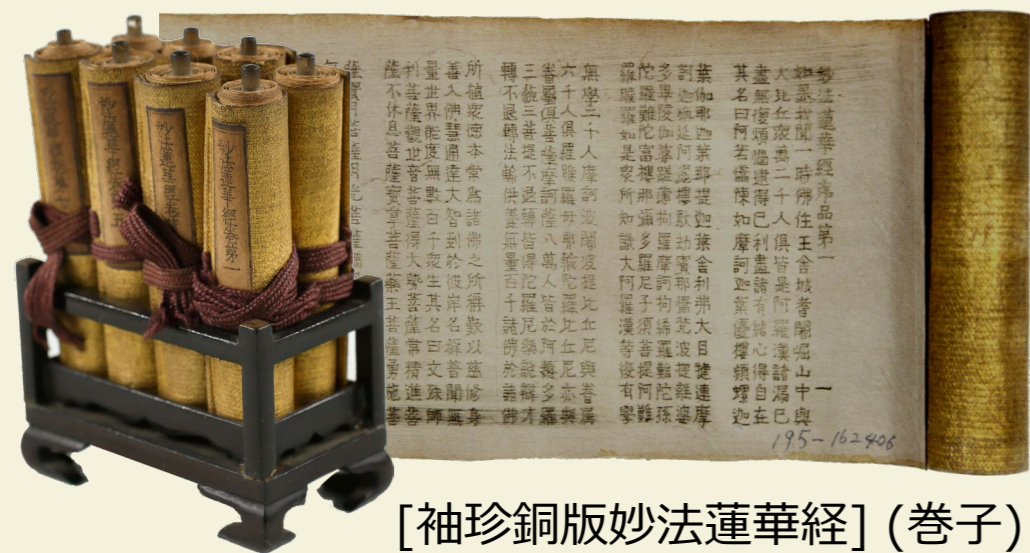 妙法蓮華經序品第一
一
如是我聞一時佛住王舍城耆闍崛山中與
大比丘衆萬二千人俱皆是阿羅漢諸漏已
盡無復煩惱逮得已利盡諸有結心得自在
其名曰阿若憍陳如摩訶迦葉優樓頻螺迦
葉伽耶迦葉那提迦葉舍利弗大目揵連摩
訶迦旃延阿㝹樓馱劫賓那憍梵波提離婆
多畢陵伽婆蹉薄拘羅摩訶拘絺羅難陀孫
陀羅難陀富樓那彌多羅尼子須菩提阿難
羅睺羅如是衆所知識大阿羅漢等復有學
無學二千人摩訶波闍波提比丘尼與眷屬
六千人俱羅睺羅母耶輸陀羅比丘尼亦與
眷屬俱菩薩摩訶薩八萬人皆於阿耨多羅
三藐三菩提不退轉皆得陀羅尼樂說辯才
轉不退轉法輪供養無量百千諸佛於諸佛
所植衆德本常爲諸佛之所稱歎以慈修身
善入佛慧通達大智到於彼岸名稱普聞無
量世界能度無數百千衆生其名曰文殊師
利菩薩觀世音菩薩得大勢菩薩常精進菩
薩不休息菩薩寶掌菩薩藥王菩薩勇施菩
薩寶月菩薩月光菩薩
195-162406
妙法蓮華經卷第一
妙法蓮華經卷
[袖珍銅版妙法蓮華経] (巻子)